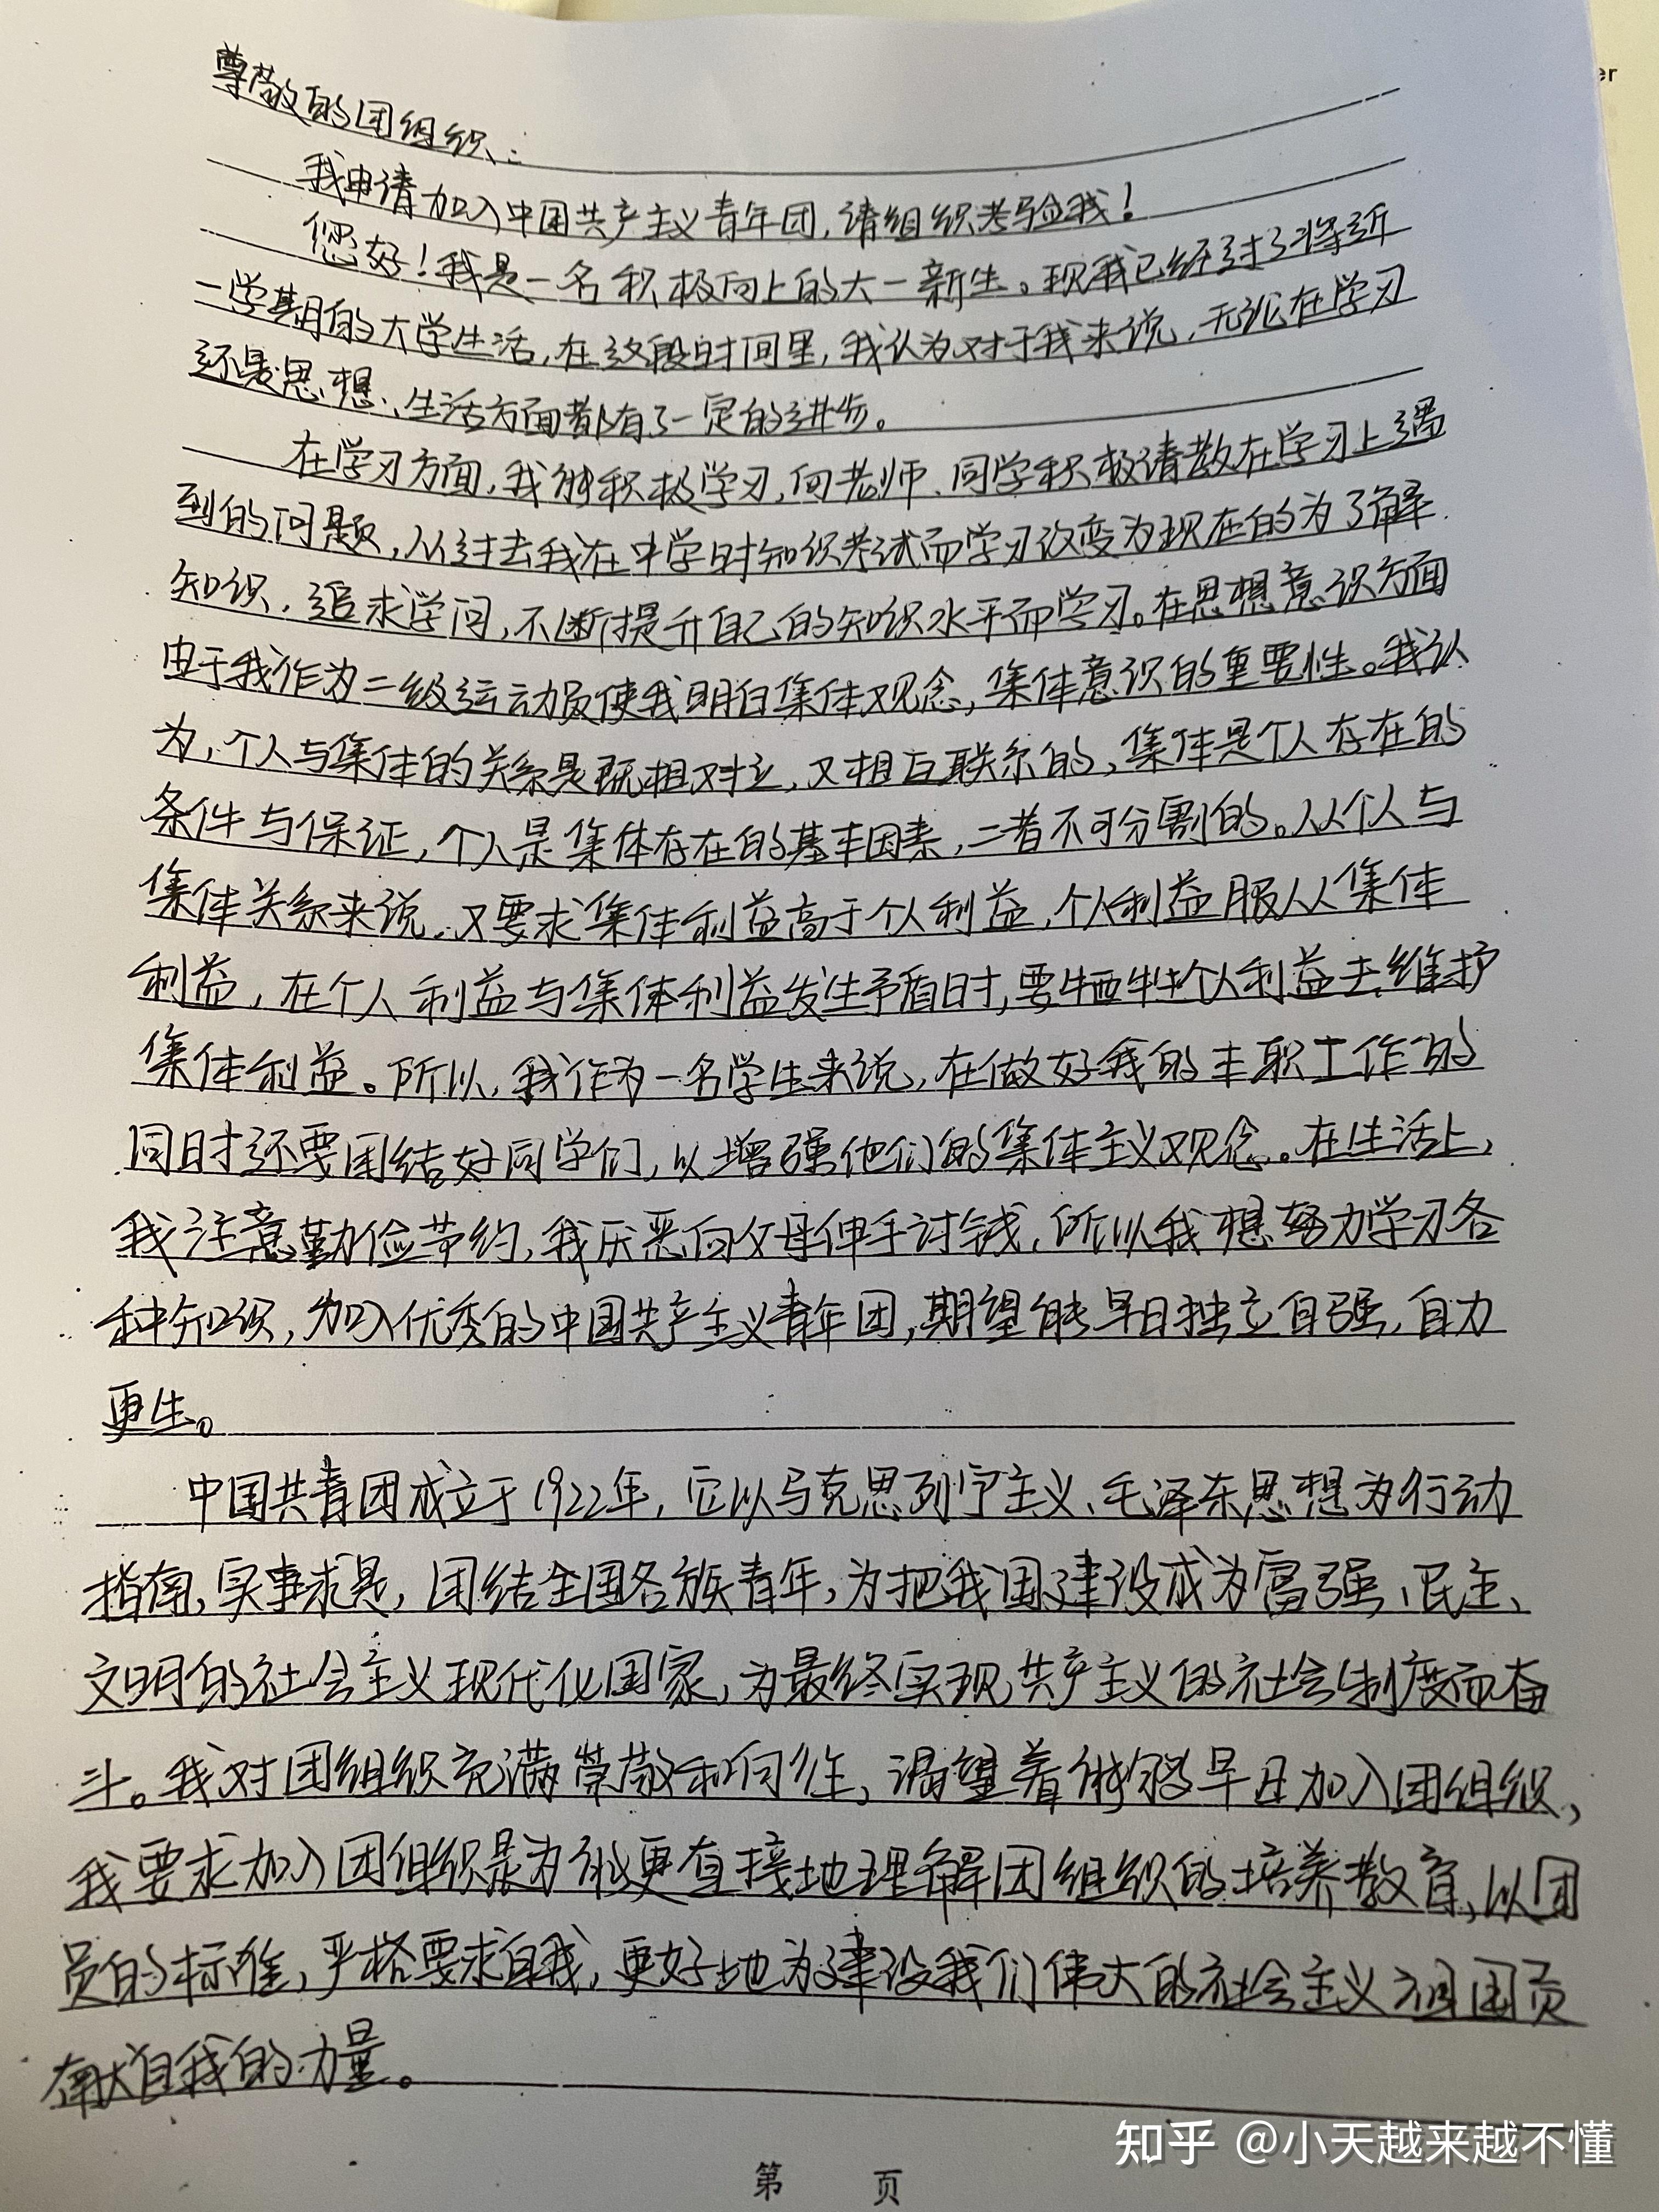 er
尊敬的团组织:
我申请加入中国共产主义青年团,请组织考验我!
您好!我是一名积极向上的大一新生。现我已经过了将近
一学期的大学生活,在这段时间里,我认为对于我来说,无论在学习
还是思想、生活方面都有了一定的进步。
在学习方面,我能积极学习,向老师、同学积极请教在学习上遇
到的问题,从过去我在中学时知识考试而学习改变为现在的为了解
知识,追求学问,不断提升自己的知识水平而学习。在思想意识方面
由于我作为二级运动员使我明白集体观念,集体意识的重要性。我认
为,个人与集体的关系是既相对立,又相互联系的,集体是个人存在的
条件与保证,个人是集体存在的基本因素,二者不可分割的。从个人与
集体关系来说,又要求集体利益高于个人利益,个人利益服从集体
利益,在个人利益与集体利益发生矛盾时,要牺牲个人利益去维护
集体利益。所以,我作为一名学生来说,在做好我的本职工作的
同时还要团结好同学们,以增强他们的集体主义观念。在生活上,
我注意勤俭节约,我厌恶向父母伸手讨钱,所以我想努力学习各
种知识,加入优秀的中国共产主义青年团,期望能早日独立自强,自力
更生。
中国共青团成立于1922年,它以马克思列宁主义、毛泽东思想为行动
指南,实事求是,团结全国各族青年,为把我国建设成为富强、民主、
文明的社会主义现代化国家,为最终实现共产主义的社会制度而奋
斗。我对团组织充满崇敬和向往,渴望着能够早日加入团组织,
我要求加入团组织是为能更直接地理解团组织的培养教育,以团
员的标准,严格要求自我,更好地为建设我们伟大的社会主义祖国贡
献自我的力量。
知乎 @小天越来越不懂
第 页